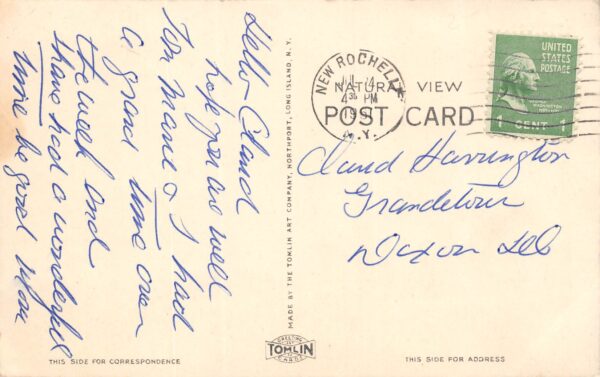 Hello Claud
hope you are well
Tom Maud & I had
a grand time over
the week end
have had a wonderful
time be good Mom
MADE BY THE TOMLIN ART COMPANY, NORTHPORT, LONG ISLAND, N. Y.
NEW ROCHELLE
4 30 PM
N.Y.
NATURAL VIEW
POST CARD
UNITED
STATES
POSTAGE
1 CENT 1
Claud Harrington
Grandetour
Dixon Ill
GREETING
TOMLIN
CARDS
THIS SIDE FOR CORRESPONDENCE
THIS SIDE FOR ADDRESS